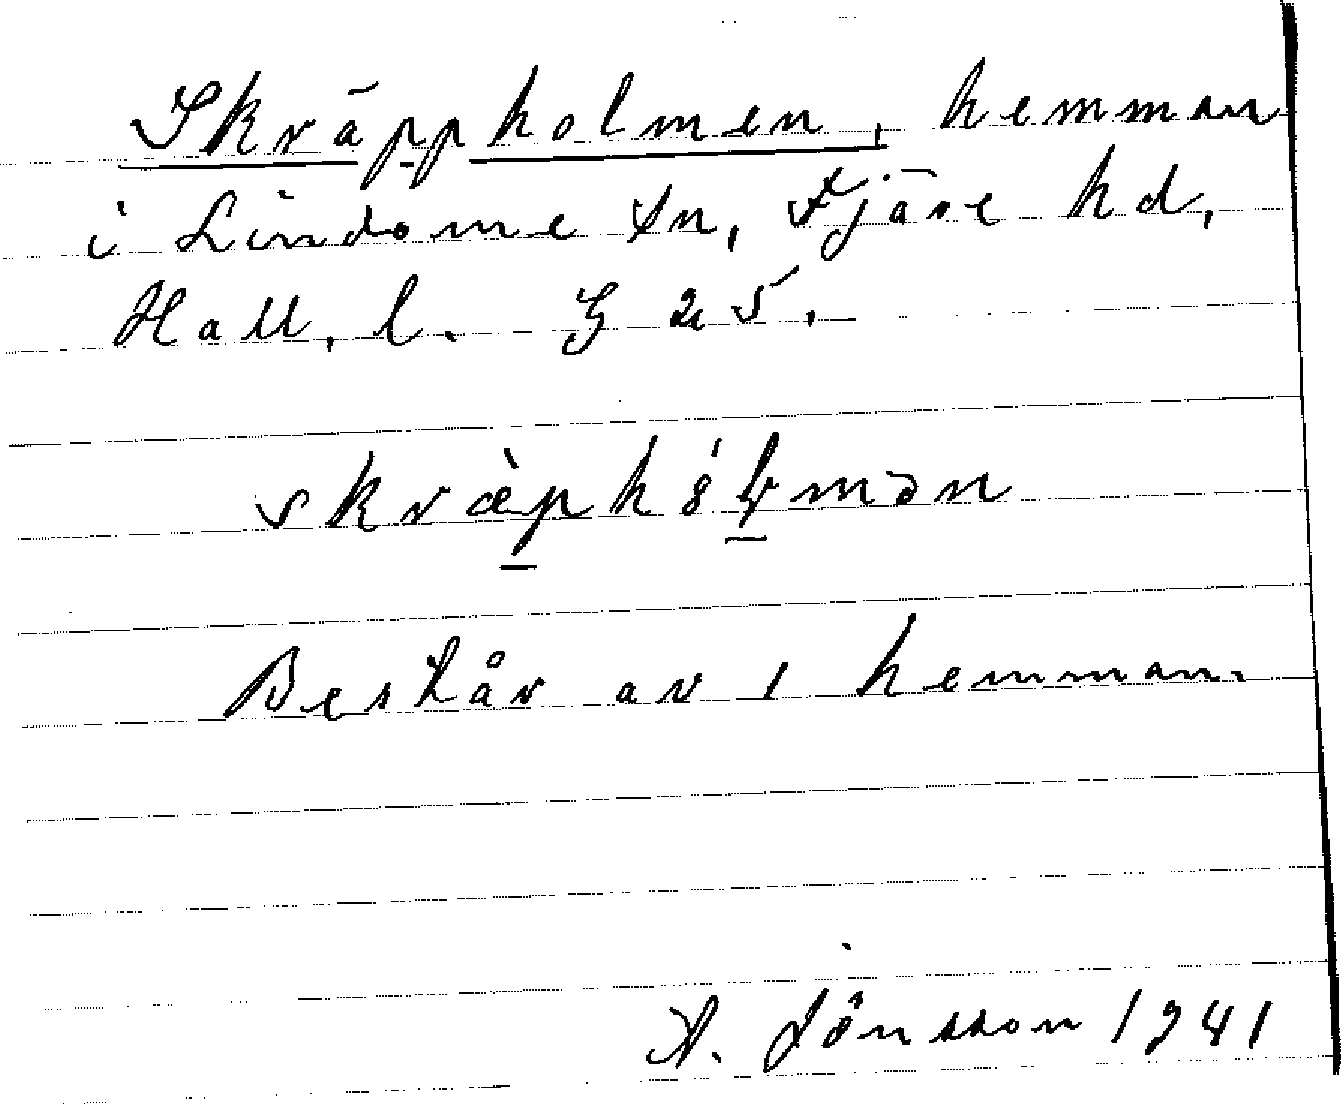 Skräppholmen, hemman
i Lindome sn, Fjäre hd,
Hall. l. G 25.
Består av 1 hemman.
A. Jönsson 1941